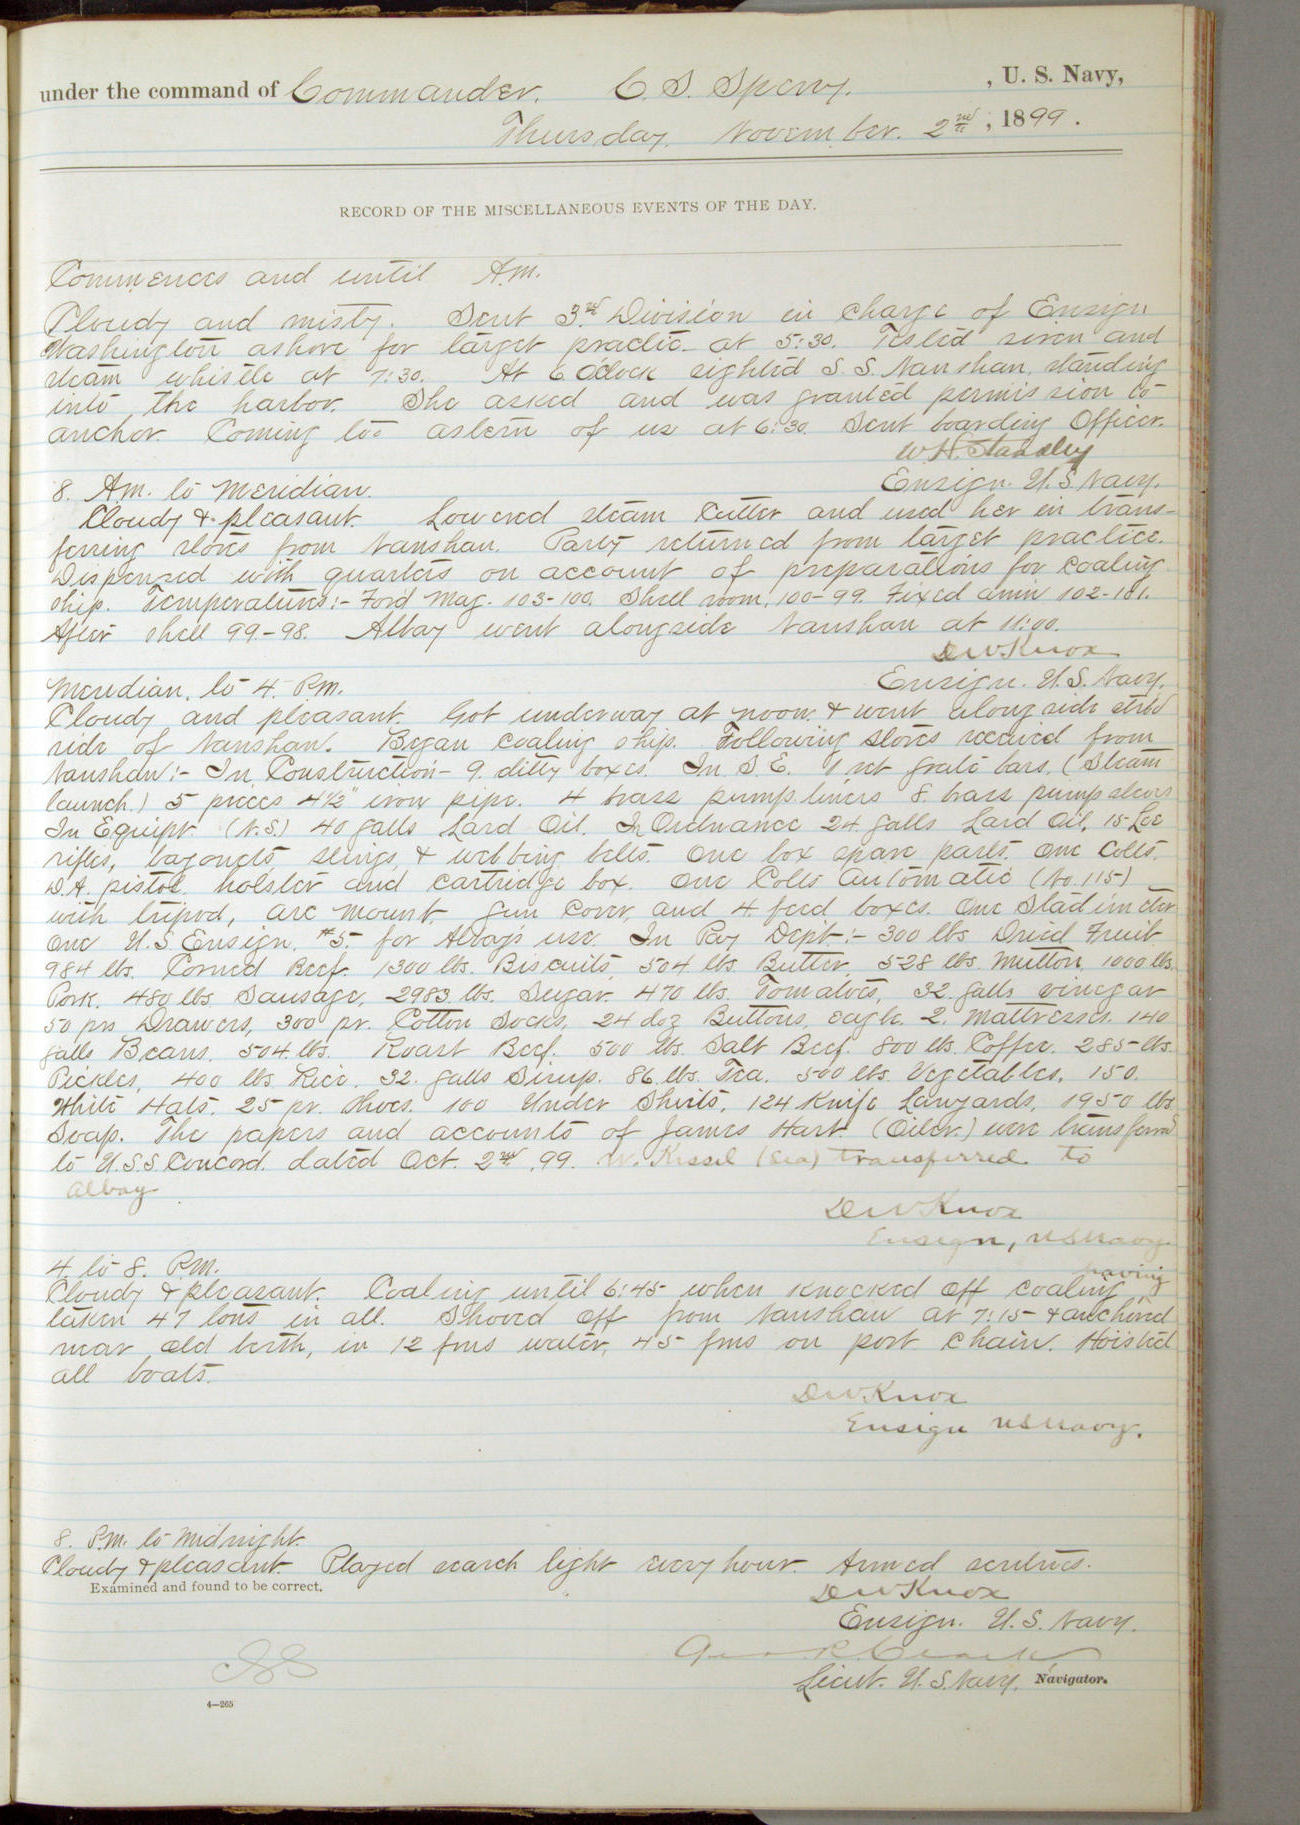 under the command of Commander. C. S. Sperry. , U. S. Navy,
Thursday, November. 2nd, 1899.
RECORD OF THE MISCELLANEOUS EVENTS OF THE DAY.
Commences and until A.M.
Cloudy and misty. Sent 3rd Division in charge of Ensign
Washington ashore for target practic at 5:30. Tested siren and
steam whistle at 7:30. At 6 O'clock sighted S. S. Nanshan, standing
into the harbor. She asked and was granted permission to
anchor. Coming to astern of us at 6:30. Sent boarding Officer.
W H. Standley
8. A.m. to Meridian. Ensign. U.S. Navy.
Cloudy & pleasant. Lowered steam cutter and used her in trans-
ferring stores from Nanshan. Party returned from target practice.
Dispensed with quarters on account of preparations for coaling
ship. Temperatures:- Ford Mag. 103-100. Shell room, 100-99. Fixed amn 102-101.
After shell 99-98. Albay went alongside Nanshan at 11:00.
D W Knox
Meridian. to 4. P.M. Ensign. U.S. Navy.
Cloudy and pleasant. Got underway at noon & went alongside stbd
side of Nanshan. Began coaling ship. Following stores received from
Nanshan:- In Construction- 9. ditty boxes. In S. E. 1 set grate bars. (Steam
launch.) 5 pieces 4½" iron pipe. 4 brass pump liners 8. brass pump
In Equipt (N.S.) 40 galls Lard Oil. In Ordnance 24 galls Lard Oil, 15-Lee
rifles, bayonets slings, & webbing belts. One box spare parts. One Colts.
D.A. pistol holster and cartridge box. One Colts automatic (No. 115)
with tripod, arc mount, gun cover, and 4 feed boxes. One Stadimeter
One U.S. Ensign, #5. for Albay's use. In Pay Dept:- 300 lbs Dried Fruit
984 lbs. Corned Beef. 1300 lbs. Biscuits, 504 lbs. Butter, 528 lbs Mutton, 1000 lbs.
Pork. 480 lbs Sausage, 2983. lbs. Sugar. 470 lbs. Tomatoes, 32 galls vinegar
50 prs Drawers, 300 pr. Cotton Socks, 24 doz Buttons, eagle. 2. Mattresses. 140
galls Beans. 504. lbs. Roast Beef. 500 lbs. Salt Beef. 800 lbs. Coffee. 285-lbs.
Pickles, 400 lbs Rice. 32. galls Sirup. 86. lbs. Tea. 500 lbs. Vegetables, 150.
White Hats. 25 pr. Shoes. 100 Under Shirts, 124 Knife Lanyards, 1950 lbs
Soap. The papers and accounts of James Hart. (Oiler.) were transferred
to U.S.S. Concord. dated Oct. 2nd, 99. W. Kissel (Sea) transferred to
Albay
D W Knox
Ensign, U S Navy.
4. to 8. P.M.
Cloudy & pleasant. Coaling until 6:45 when knocked off coaling, having
taken 47 tons in all. Shoved off from Nanshan at 7:15 & anchored
near old berth, in 12 fms water, 45 fms on port chain. Hoisted
all boats.
D W Knox
Ensign U S Navy.
8. P.M. to Midnight.
Cloudy & pleasant. Played search light every hour. Armed sentries.
Examined and found to be correct.
D W Knox
Ensign. U. S. Navy.
Geo. R. Clark
Lieut. U. S. Navy, Navigator.
4—265